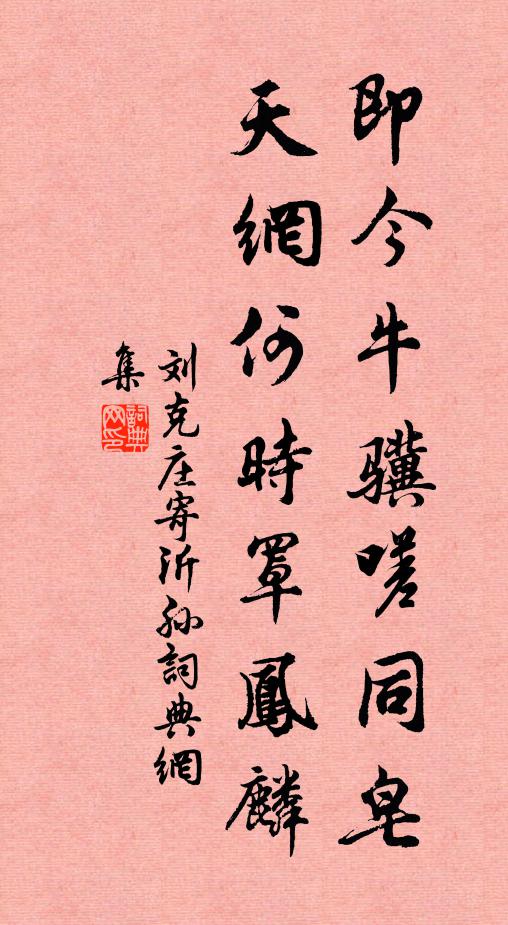 即今牛骥嗟同皂
天網何時罩鳳麟
刘克庄寄沂孙詞典網
集
詞典网印